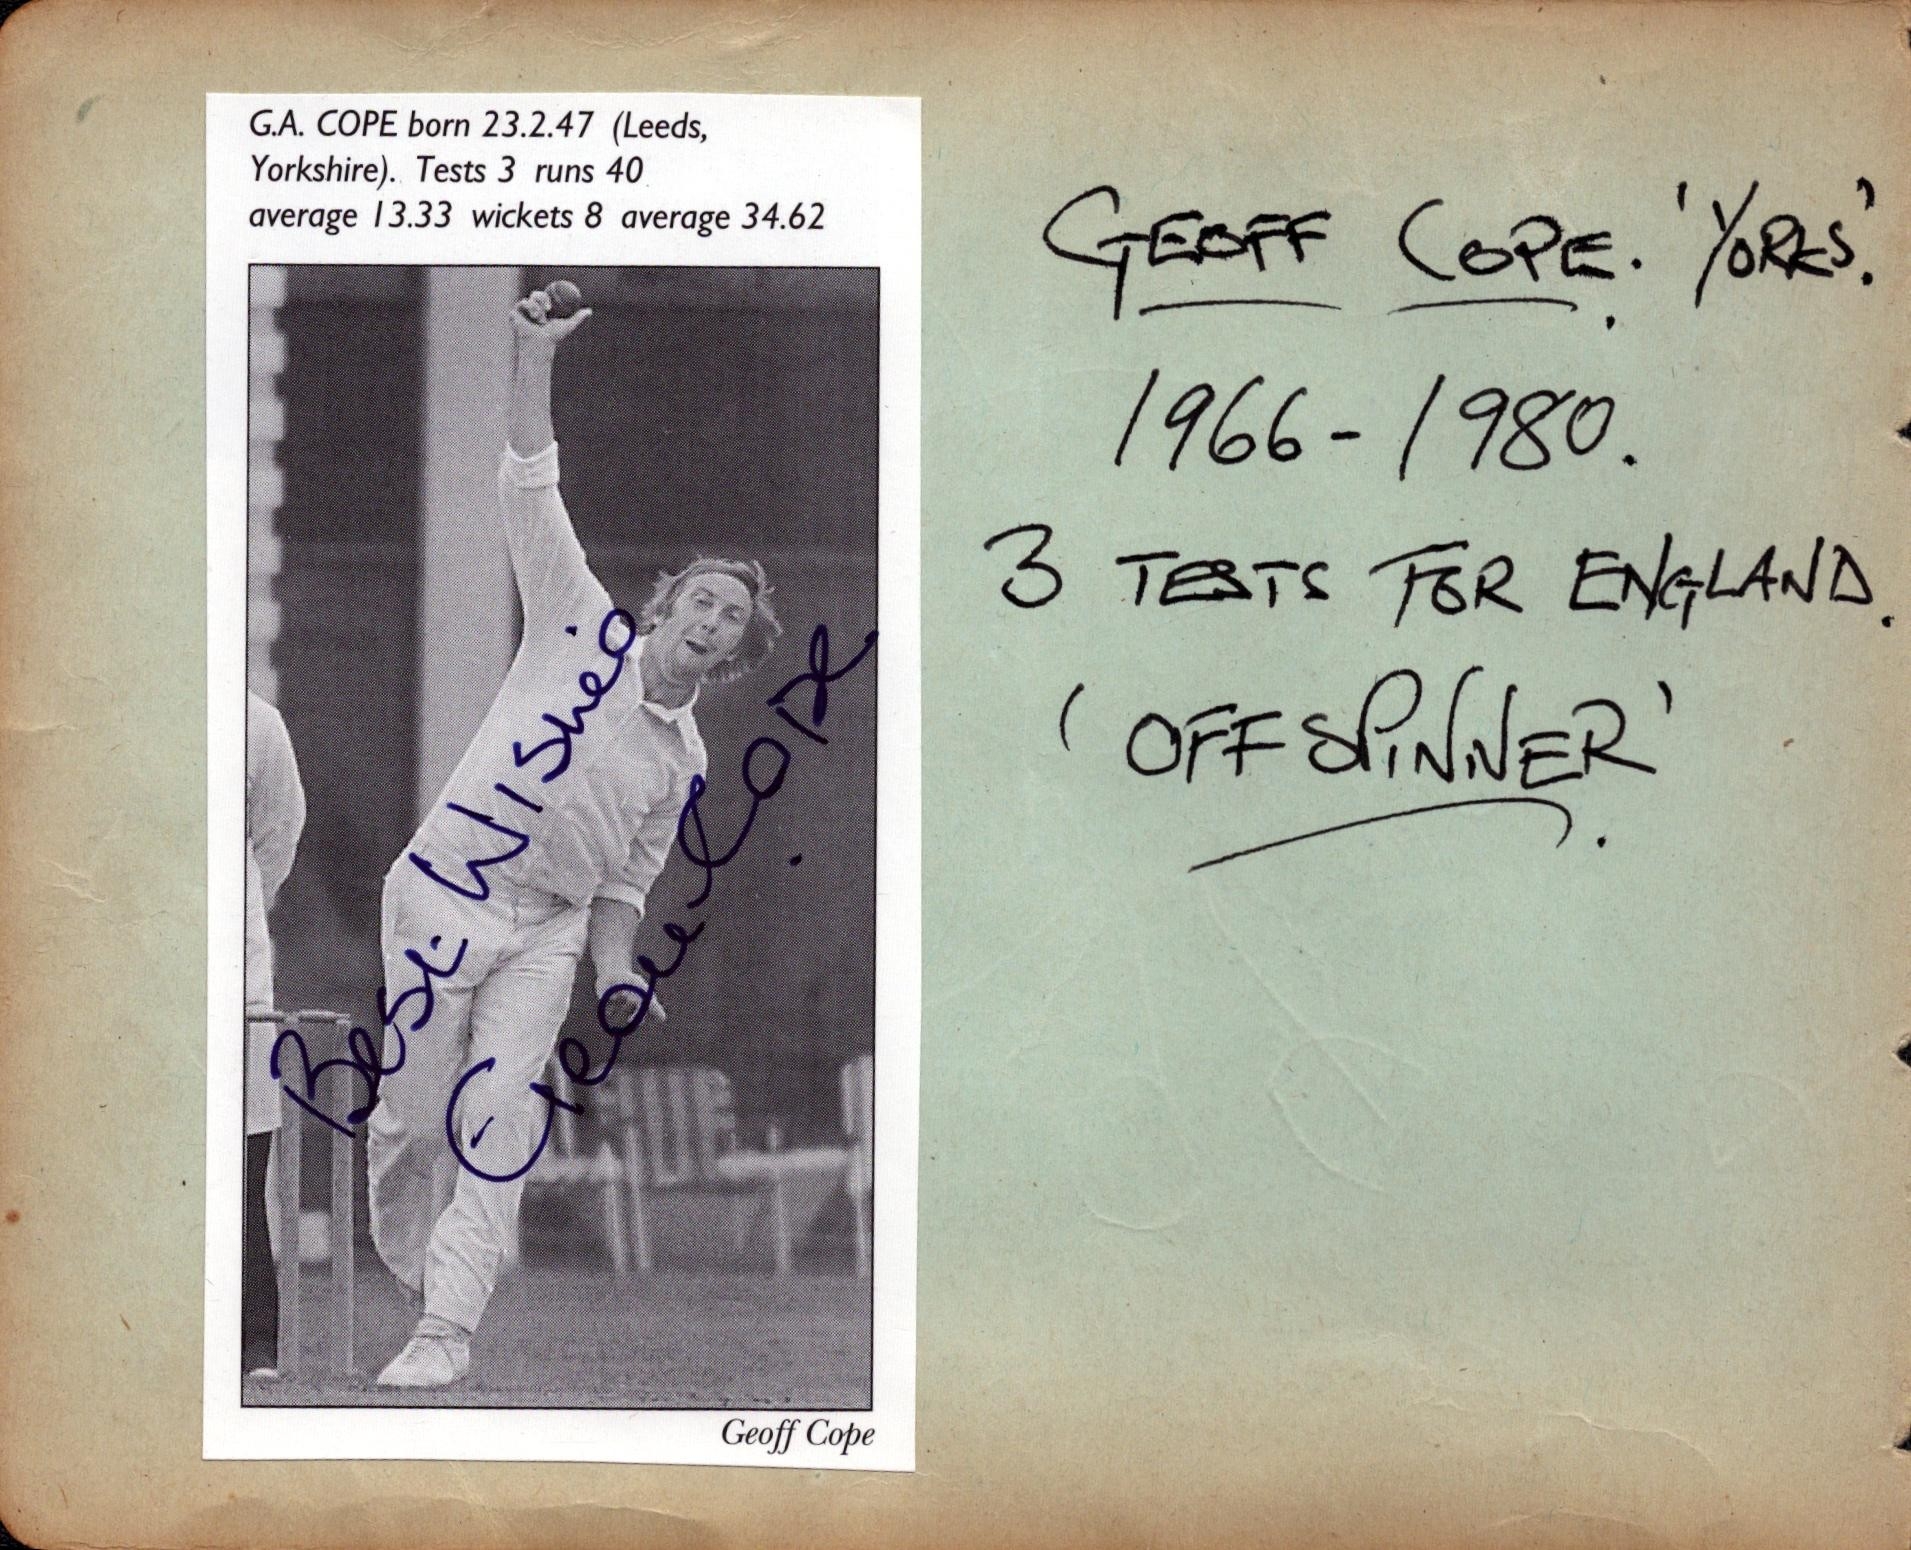 G.A. COPE born 23.2.47 (Leeds,
Yorkshire). Tests 3 runs 40
average 13.33 wickets 8 average 34.62
Best Wishes
Geoff Cope.
Geoff Cope
GEOFF COPE. 'YORKS'.
1966-1980.
3 TESTS FOR ENGLAND.
'OFF SPINNER'.